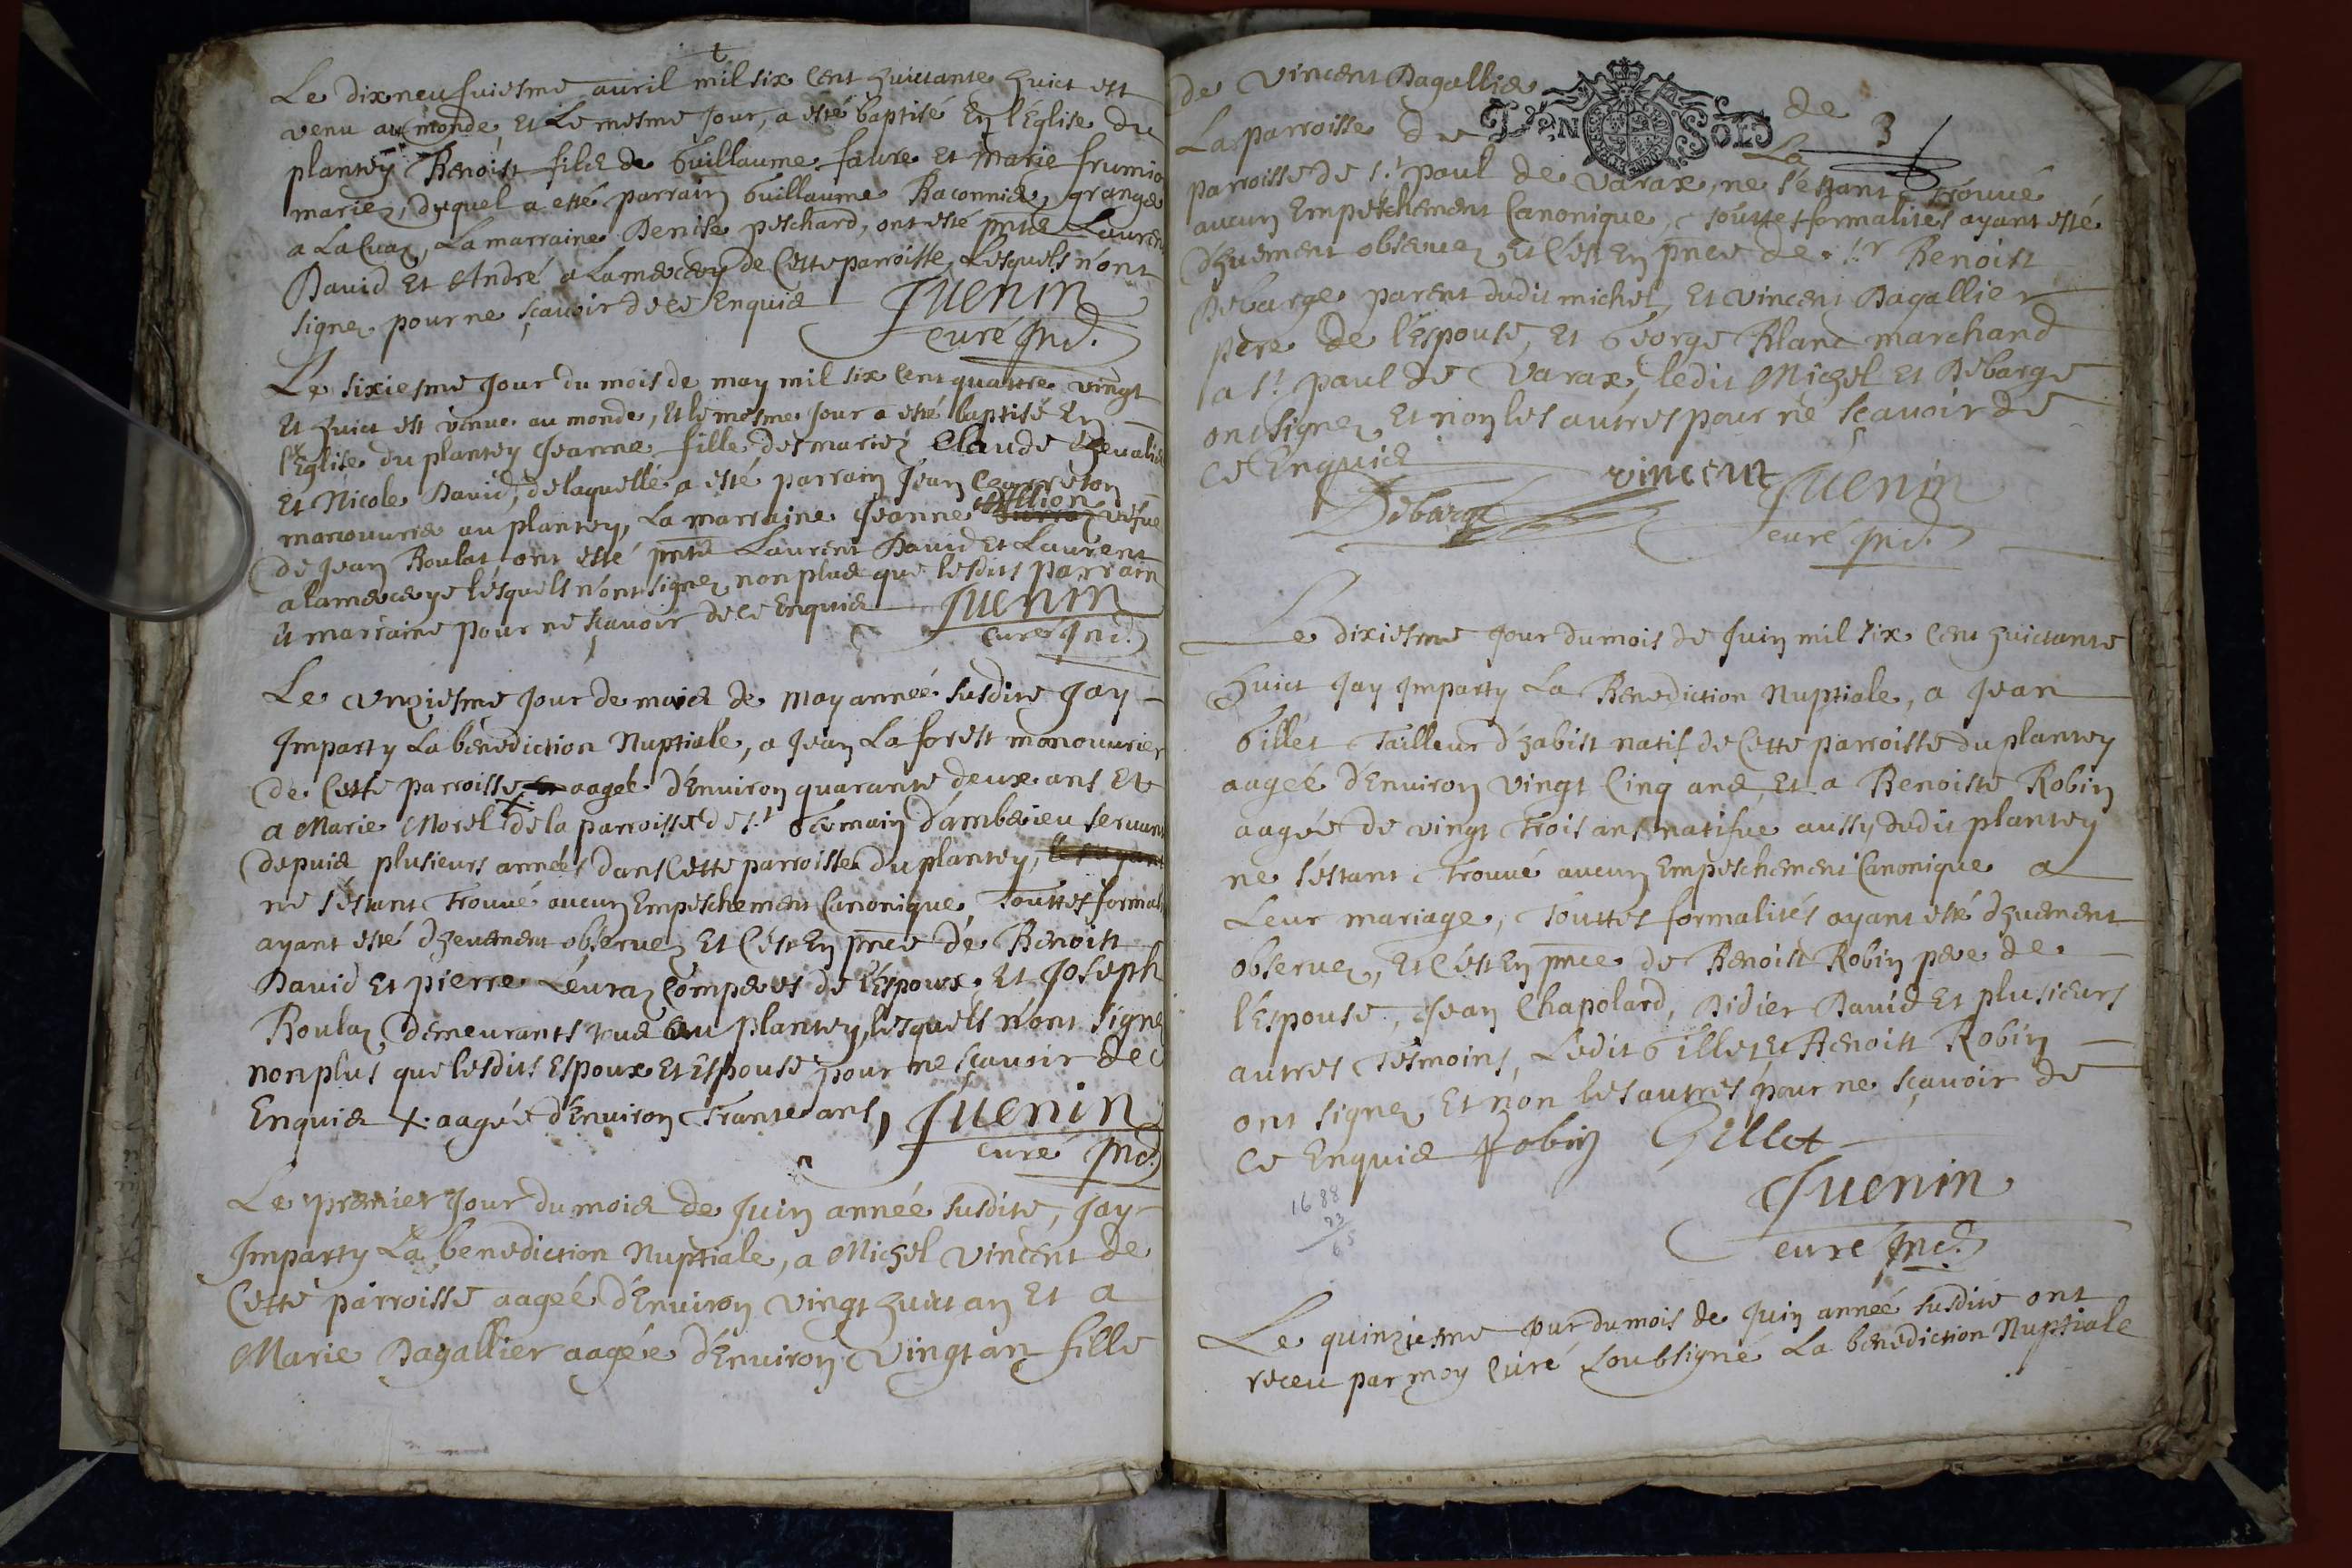 Le dixneufuiesme auril mil six Cent huictante huict est
venu au monde Et Le mesme Jour, a esté baptisé En l'Eglise du
plantey Benoist fils de Guillaume faure Et Marie frumio
mariez, duquel a esté parrain Guillaume Raconnier, granger
a La Cuaz, La marraine Denise peschard, ont esté pntz Laurent
David Et André a Lamercery de Cette parroisse, Lesquels n'ont
signez pour ne sçauoir de ce Enquis Juenin
curé Ind.
Le sixiesme Jour du mois de may mil six Cent quattre vingt
Et huict est venue au monde, Et le mesme Jour a esté baptisé En
l'Eglise du plantey Jeanne fille des mariez Claude Chevalier
Et Nicole David, de laquelle a esté parrain Jean Charreton
manouurier au plantey, La marraine Jeanne vefue
de Jean Roulat ont esté pntz Laurent David Et Laurent
alamercerye lesquels n'ont signez non plus que lesdits parrain
Et marraine pour ne sçauoir de ce Enquis Juenin
curé Ind.
Le vnziesme Jour de mois de may année susdite Jay
Imparty La bénediction Nuptiale, a Jean La forest manouurier
de Cette parroisse aagé d'Enuiron quarante deux ans Et
a Marie Morel + de la parroisse de St Germain d'amberieu seruant
depuis plusieurs années dans Cette parroisse du plantey,
ne s'estant trouué aucun Empeschement Canonique, Touttes formal
ayant esté dheuement obseruez Et C'est En pnce de Benoist
David Et pierre Leuraz Comperes de l'Espoux, Et Joseph
Roulaz demeurants tous au plantey, lesquels n'ont signez
non plus que lesdits Espoux Et Espouse pour ne sçauoir de c
Enquis + aagée d'Enuiron Trante ans, Juenin
curé Ind.
Le premier Jour du mois de Juin année susdite, Jay
Imparty La benediction Nuptiale, a Michel Vincent de
Cette parroisse aageé d'Enuiron vingt huict an Et a
Marie Dagallier aagée d'Enuiron Vingt an fille
de Vincent Dagallier de
La parroisse de GEN SOLS 3
La
parroisse de St paul de Varax, ne s'estant trouué
aucun Empeschement Canonique, touttes formalités ayant esté
dhuement obseruez, Et C'est En pnce de sr Benoist
Debarge parent dudit michel, Et Vincent Dagallier
pere de l'Espouse, Et George Blanc marchand
a St paul de Varax, ledit Michel Et Debarge
ont signez Et non les autres pour ne sçauoir de
Ce Enquis
Debarge vincent Juenin
curé Ind.
Le dixiesme Jour du mois de Juin mil six Cent huictante
huict Jay Imparty La Benediction Nuptiale, a Jean
Gillet Tailleur d'habist natif de Cette parroisse du plantey
aageé d'Enuiron vingt Cinq ans, Et a Benoiste Robin
aagée de vingt Trois ans natifue aussy dudit plantey
ne s'estant Trouué aucun Empeschement Canonique a
Leur mariage, Touttes formalités ayant esté dhuement
obseruez, Et C'est En pnce de Benoist Robin pere de
l'Espouse, Jean Chapolard, Didier David Et plusieurs
autres Tesmoins, Ledit Gillet Et Benoist Robin
ont signez Et non les autres pour ne sçauoir de
Ce Enquis Robin Gillet
1688
23
65
Juenin
curé Ind.
Le quinziesme Jour du mois de Juin année susdite ont
receu par moy Curé soubsigné La benediction Nuptiale